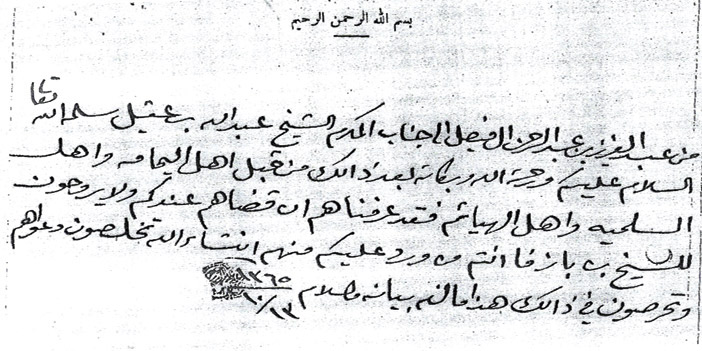 بسم الله الرحمن الرحيم
من عبد العزيز بن عبد الرحمن الفيصل الى جناب المكرم الشيخ عبد الله بن عقيل سلمه الله تعالى
السلام عليكم ورحمة الله وبركاته بعد ذالك من قبل اهل اليمامه واهل
السلميه واهل الهياثم فقد عرفناهم ان قضاهم عندكم ولا يروحون
للشيخ بن باز فا انتم من ورد عليكم منهم انشاء الله تخلصون دعواهم
وتحرصون في ذالك هذا مالزم بيانه والسلام
١٣٦٥
١٠/١٣